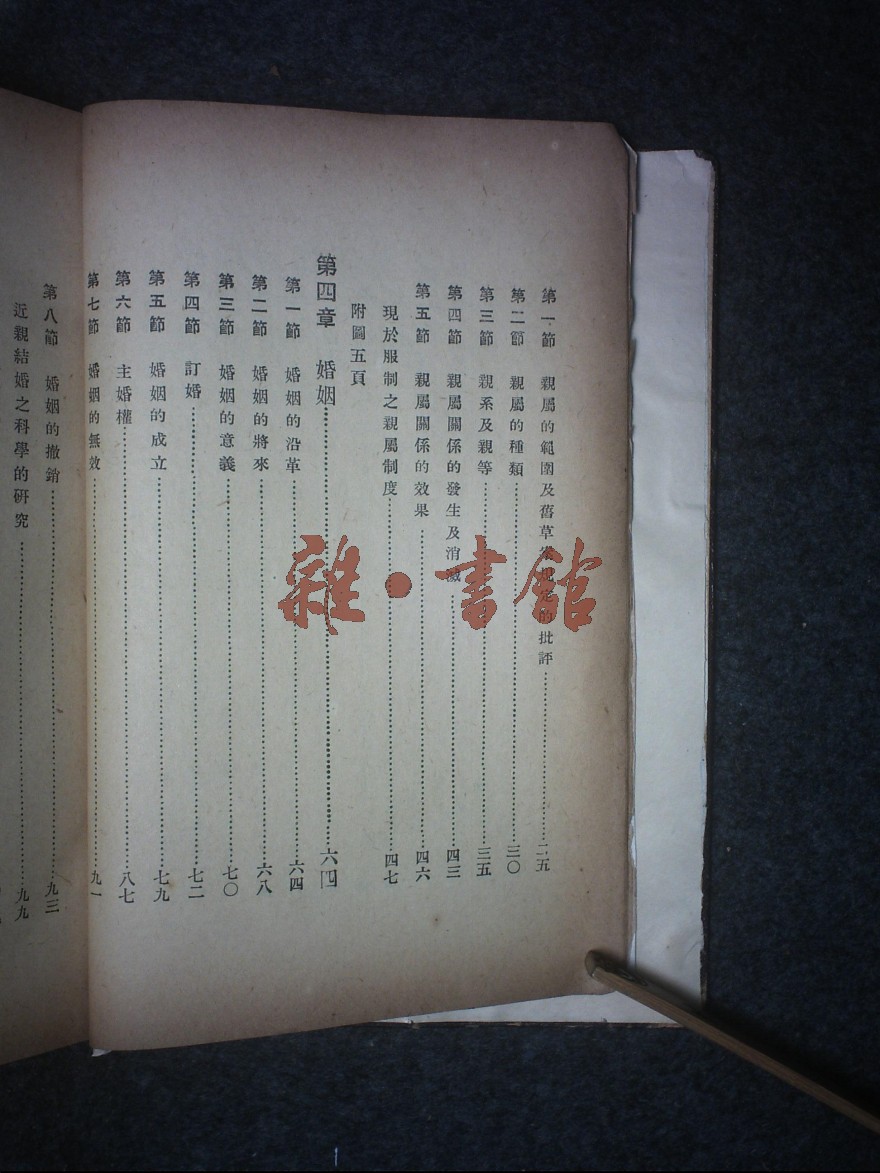 第一節 親屬的範圍及舊草案規定的批評……二五
第二節 親屬的種類……三〇
第三節 親系及親等……三五
第四節 親屬關係的發生及消滅……四三
第五節 親屬關係的效果……四六
現於服制之親屬制度……四七
附圖五頁
第四章 婚姻……六四
第一節 婚姻的沿革……六四
第二節 婚姻的將來……六八
第三節 婚姻的意義……七〇
第四節 訂婚……七二
第五節 婚姻的成立……七九
第六節 主婚權……八七
第七節 婚姻的無效……九一
第八節 婚姻的撤銷……九三
近親結婚之科學的研究……九九
雜·書館